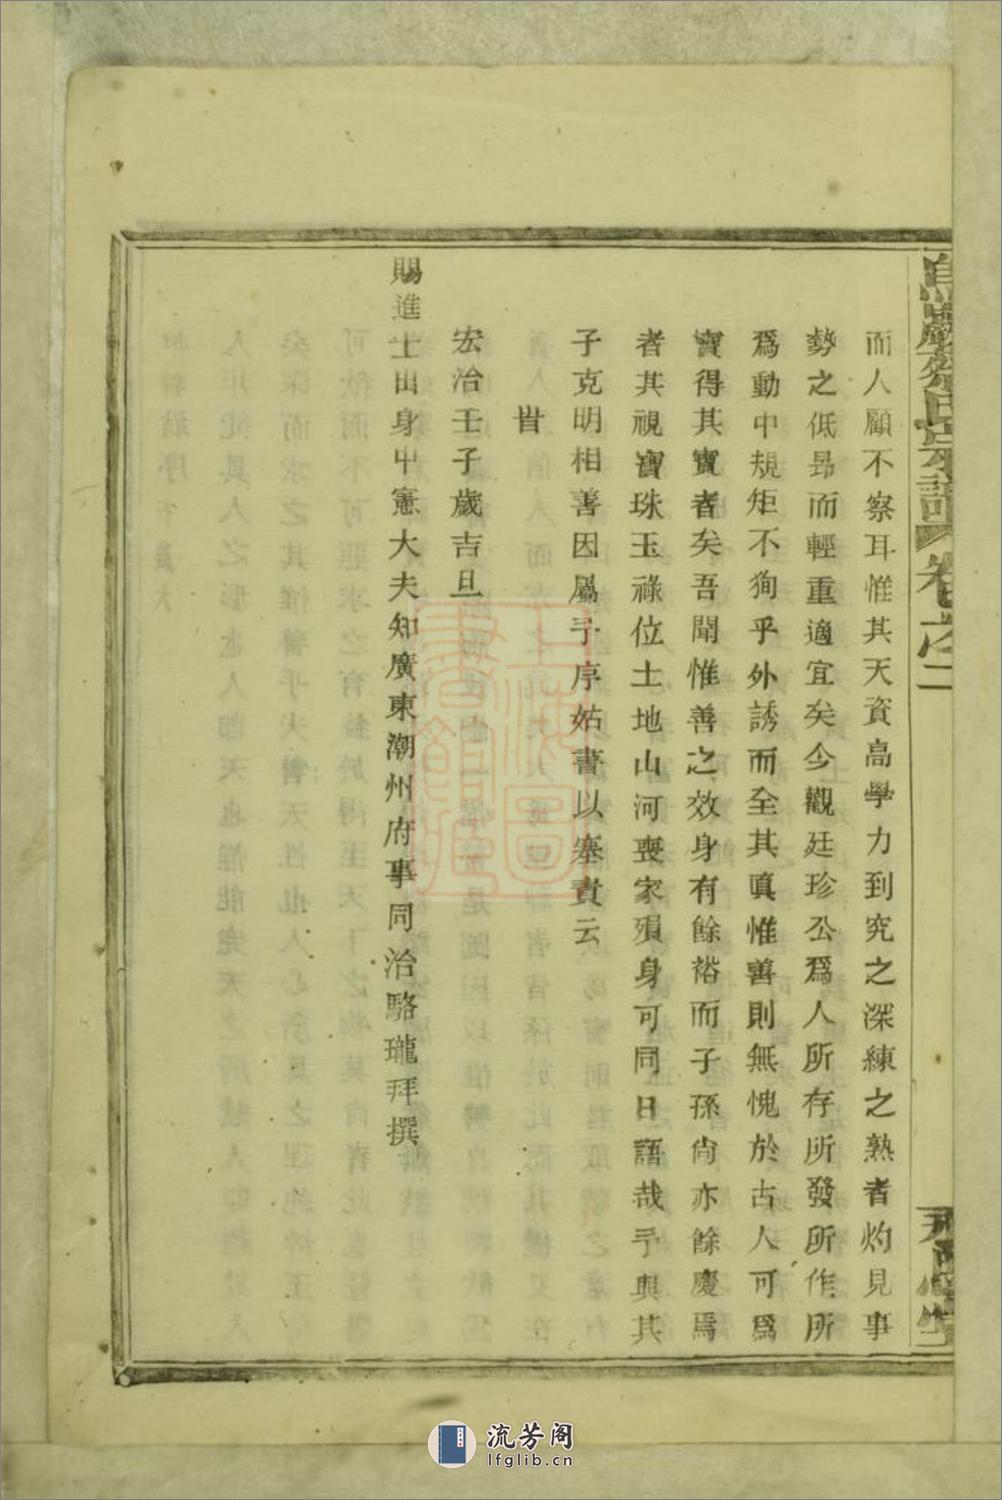 而人顧不察耳惟其天資高學力到究之深練之熟者灼見事
勢之低昂而輕重適宜矣今觀廷珍公爲人所存所發所作所
爲動中規矩不狥乎外誘而全其眞惟善則無愧於古人可爲
寶得其寶者矣吾聞惟善之效身有餘裕而子孫尙亦餘慶焉
者其視寶珠玉祿位土地山河喪家殞身可同日語哉予與其
子克明相善因屬予序姑書以塞責云
旹
宏治壬子歲吉旦
賜進士出身中憲大夫知廣東潮州府事同治駱瓏拜撰
卷之二
上海圖書館藏
流芳阁
lfglib.cn